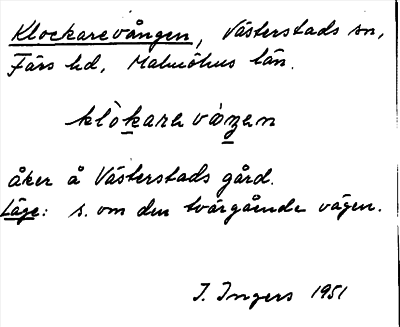 Klockarevången, Västerstads sn,
Färs hd, Malmöhus län.
klòkarevåŋen
åker å Västerstads gård.
Läge: s. om den tvärgående vägen.
I. Ingers 1951